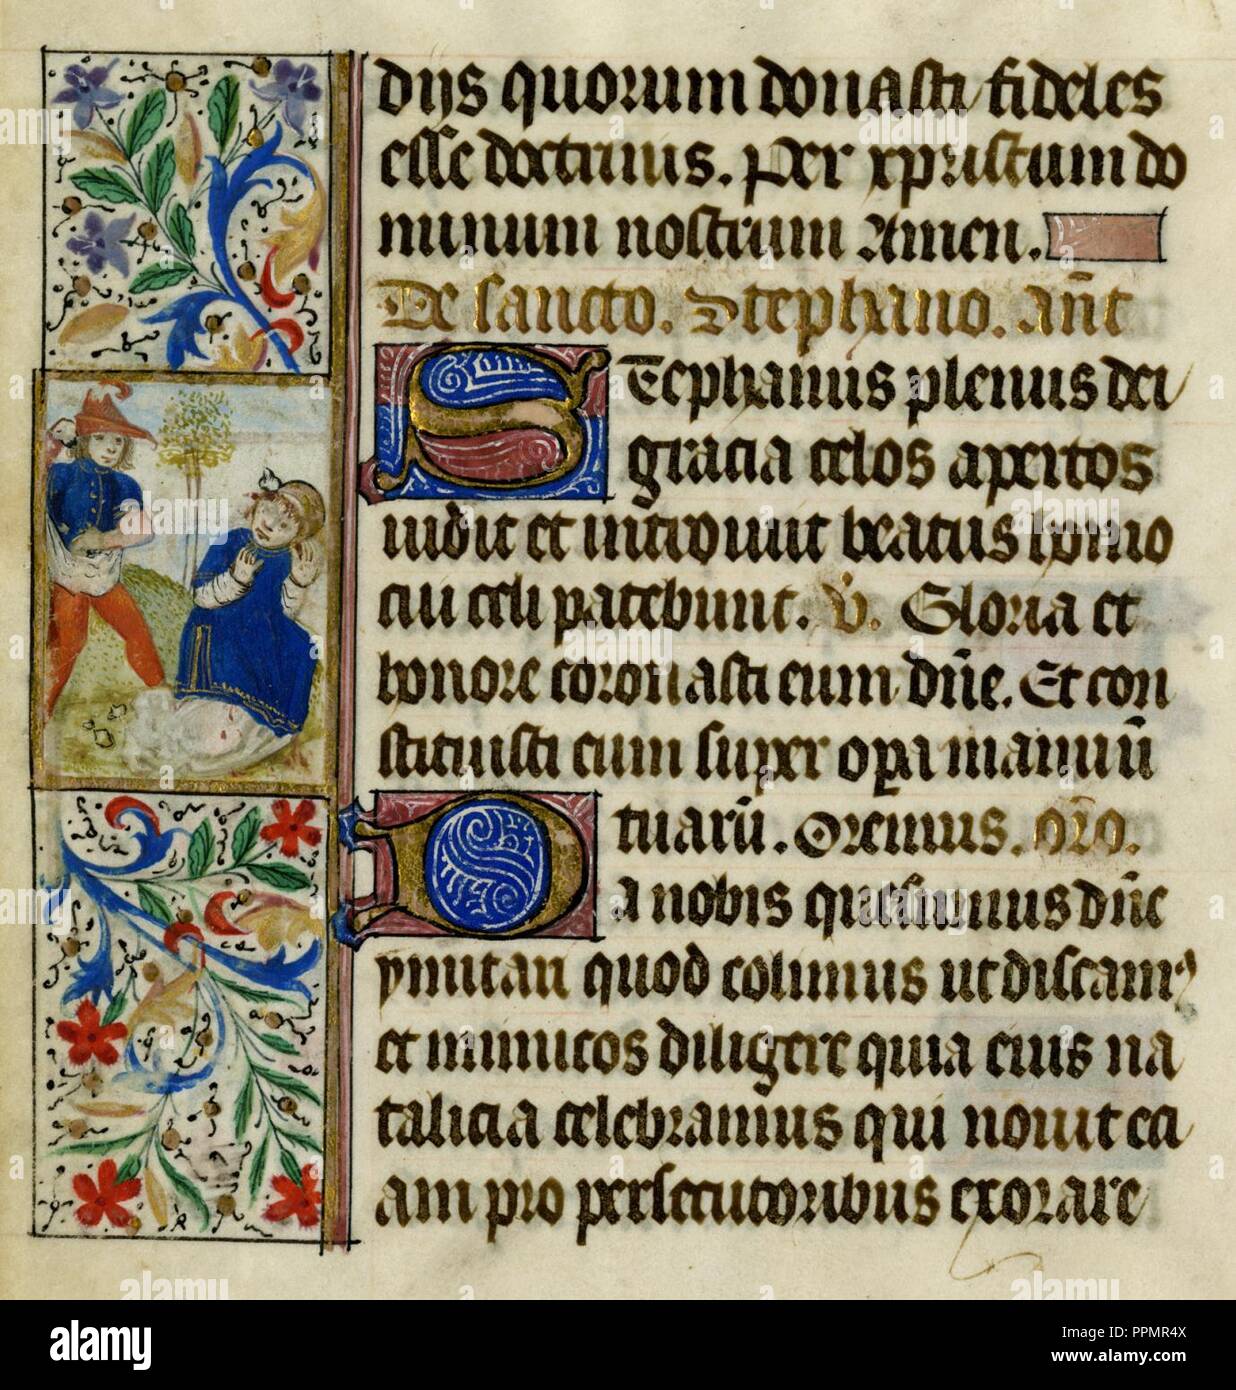 diis quorum donasti fideles
esse doctrinis. Per xpristum do
minum nostrum Amen.
De sancto. Stephano. añt
STephanus plenus dei
gracia celos apertos
uidit et introiuit beatus homo
cui celi patebunt. v̄. Gloria et
honore coronasti eum dñe. Et con
stituisti eum super opa manuū
tuarū. Oremus. oro.
Da nobis quesumus dñe
ymitari quod colimus ut discam9
et inimicos diligere quia eius na
talicia celebramus qui nouit eci
am pro persecutoribus exorare
alamy
Image ID: PPMR4X
www.alamy.com